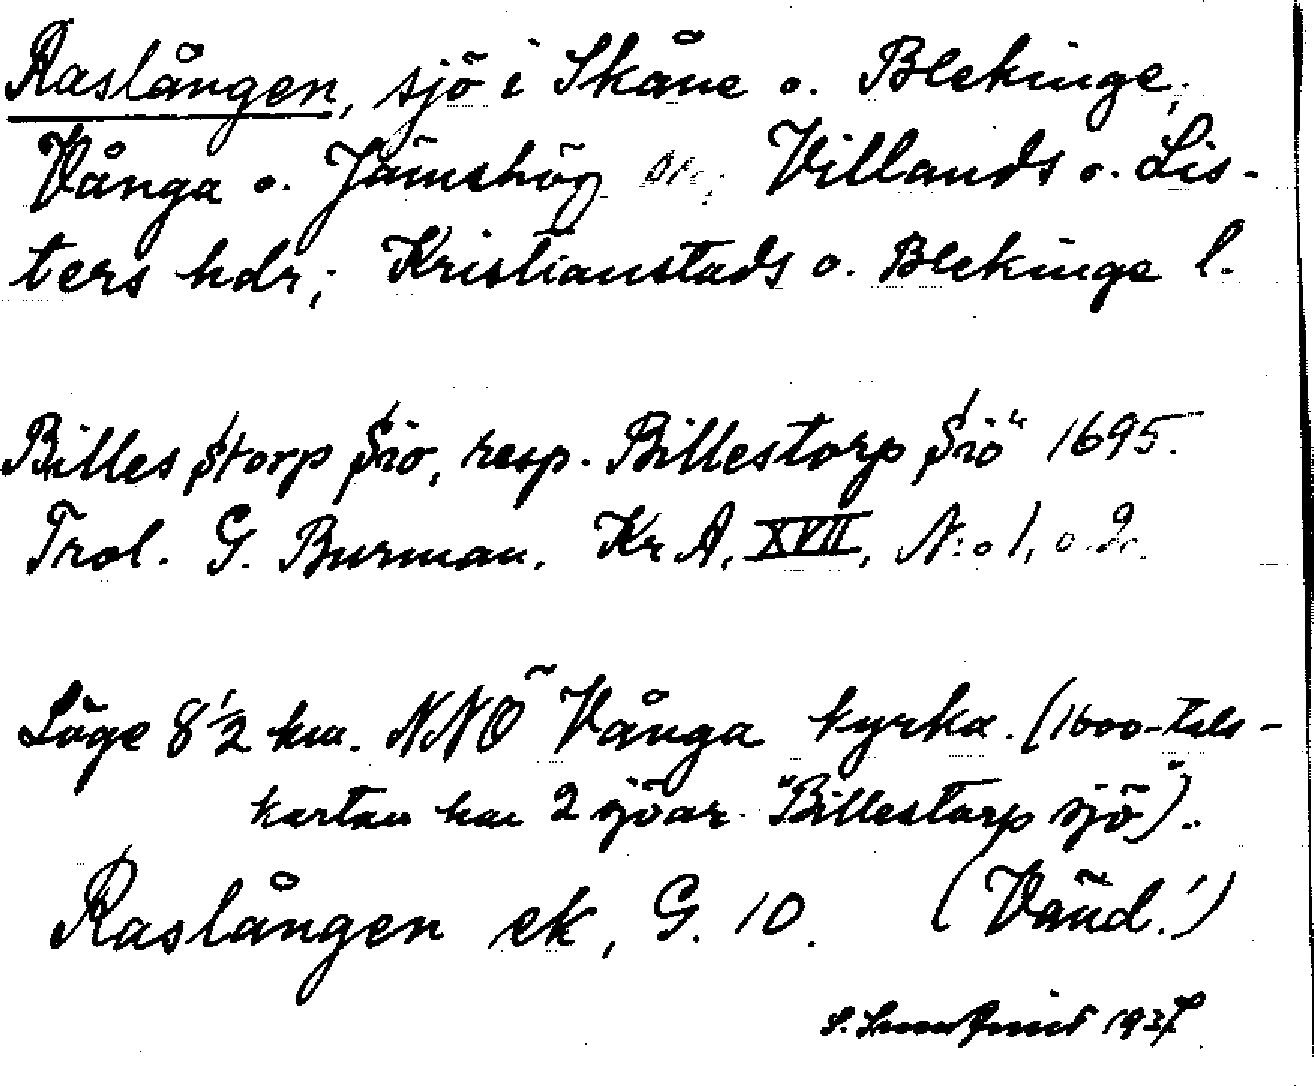 Raslången, sjö i Skåne o. Blekinge,
Vånga o. Jämshög Villands o. Lis-
ters hdr; Kristianstads o. Blekinge l.
Billes storp siö, resp. Billestorp siö 1695.
Trol. G. Burman. Kr A. XVII, N:o 1, o. 2.
Läge 8½ km. NNÖ Vånga kyrka. (1600-tals-
kartan har 2 sjöar "Billestorp sjö").
Raslången ek, G. 10. (Vänd!)
1937